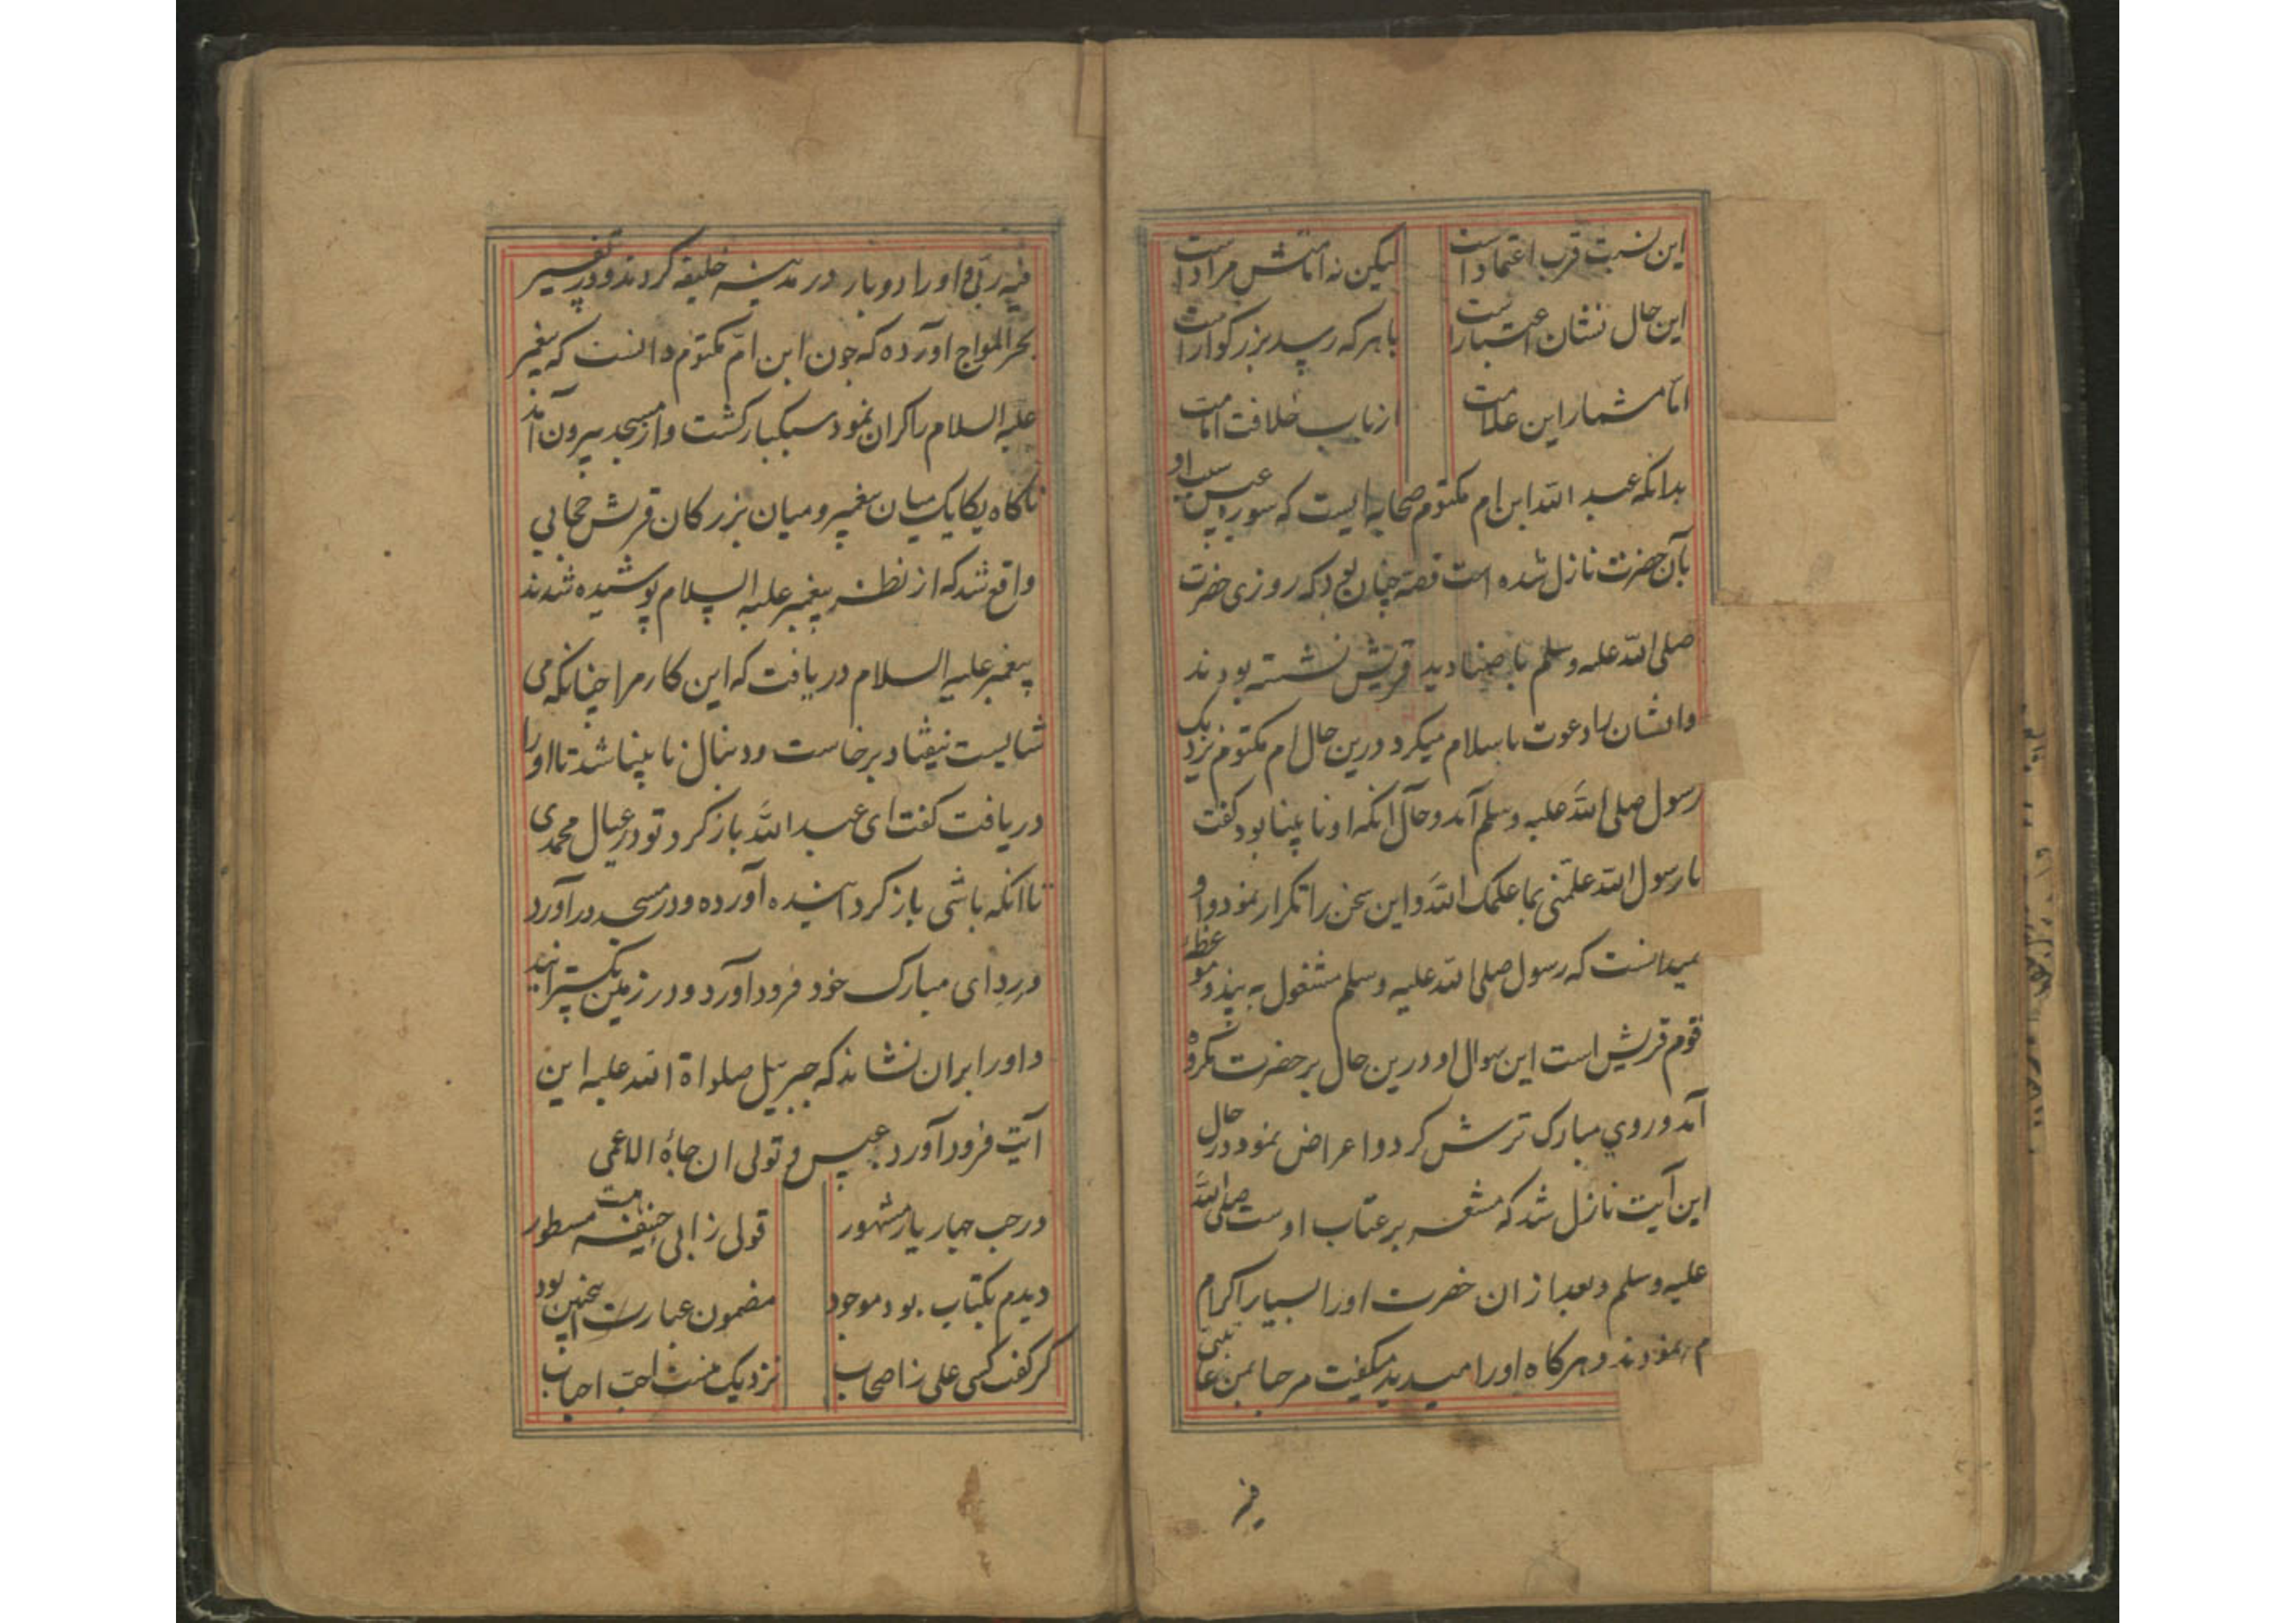 این نسبت قرب اعتماد است
لیکن نه امامتش مراد است
این حال نشان اعتبار است
با هر که رسید بزرگوار است
اما مشمار این علامت
از باب خلافت امامت
بدانکه عبد الله ابن ام مکتوم صحابه ایست که سوره عبس
بآن حضرت نازل شده است قصه چنان بود که روزی حضرت
صلی الله علیه وسلم با صنادید قریش نشسته بودند
وایشان را دعوت باسلام میکرد درین حال ام مکتوم نزدیک
رسول صلی الله علیه وسلم آمد وحال آنکه او نابینا بود کفت
یا رسول الله علمنی بما علمک الله واین سخن را تکرار نمود واو
نمیدانست که رسول صلی الله علیه وسلم مشغول به پند وموعظه
قوم قریش است این سوال او درین حال بر حضرت مکروه
آمد وروی مبارک ترش کرد واعراض نمود در حال
این آیت نازل شد که مشعر بر عتاب اوست صلی الله
علیه وسلم وبعد ازان حضرت اورا بسیار اکرام
می نمودند وهرکاه اورا میدید میکفت مرحبا بمن عاتبنی
فیه
فیه ربی واورا دوبار در مدینه خلیفه کردند ودر تفسیر
بحر المواج آورده که چون ابن ام مکتوم دانست که پیغمبر
علیه السلام را کران نمود سبکبار کشت واز مسجد بیرون آمد
ناکاه یکایک میان پیغمبر ومیان بزرکان قریش حجابی
واقع شد که از نظر پیغمبر علیه السلام پوشیده شدند
پیغمبر علیه السلام دریافت که این کار مرا چنانکه می
شایست نیفتاد برخاست ودنبال نابینا شد تا اورا
دریافت کفت ای عبد الله باز کرد تو در عیال محمدی
تا آنکه باشی باز کردانیده آورده ودر مسجد در آورد
وردای مبارک خود فرود آورد ودر زمین بکسترانید
واورا بران نشاند که جبرییل صلواة الله علیه این
آیت فرود آورد عبس و تولی ان جاءه الاعمی
در حب چهار یار مشهور
قولی ز ابی حنیفه مسطور
دیدم بکتاب بود موجود
مضمون عبارت اینچنین بود
کر کفت کسی علی ز اصحاب
نزدیک منست احب احباب